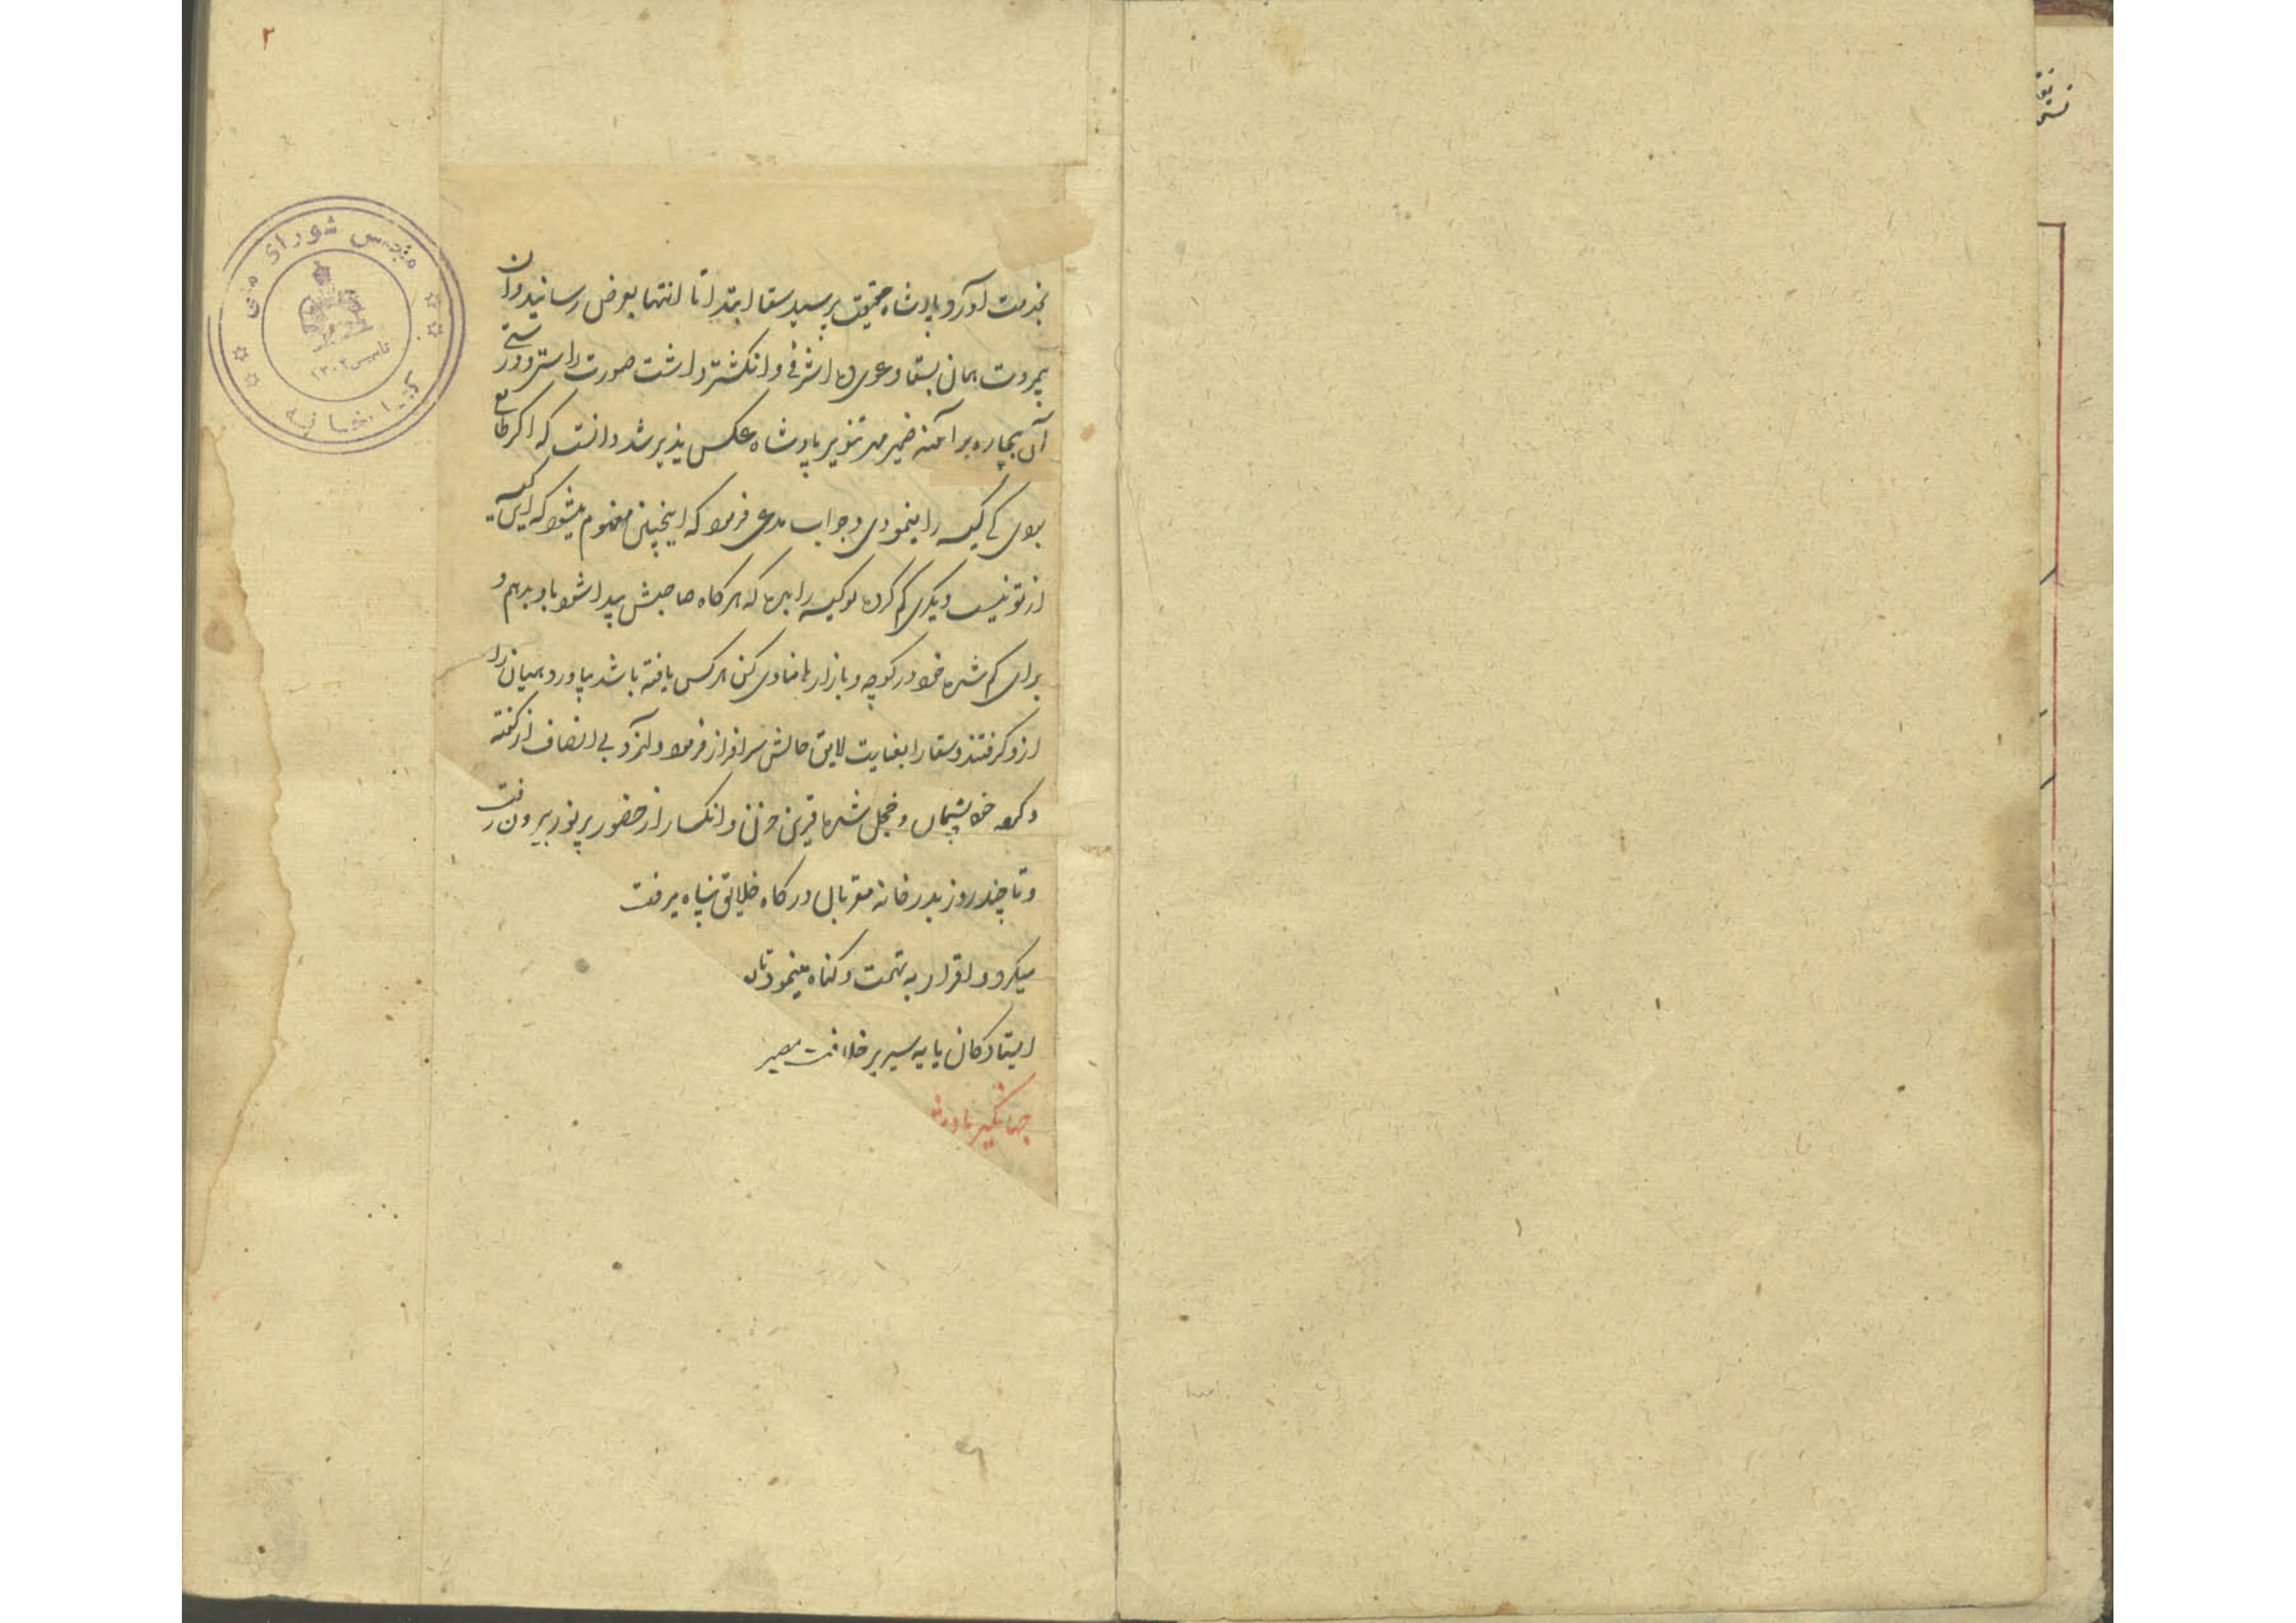 ۲
مجلس شورای ملی
تاسیس ۱۳۰۲
کتابخانه
بخدمت آورد پادشاه حقیقت پرسید سقا ابتدا تا انتها بعرض رسانید و آن
بیمروت همان بسقا دعوی ده اشرفی و انکشتر داشت صورت راستی و درستی
آن بیچاره بر آئنه ضمیر مهر تنویر پادشاه عکس پذیر شد دانست که اکر طامع
بودی کی کیسه را مینمودی و جواب مدعی فرمود که اینچنین مفهوم میشود که این کیسه
از تو نیست دیکری کم کرده تو کیسه را بده که هرکاه صاحبش پیدا شود باو بدهم و
برای کم شده خود در کوچه و بازار ها منادی کن هر کس یافته باشد بیاورد و همیان را
ازو کرفتند و سقا را بعنایت لایق حالش سرافراز فرمود و آنمرد بی انصاف از کفته
و کرده خود پشیمان و خجل شده قرین حزن و انکسار از حضور پر نور بیرون رفت
و تا چند روز بدر خانه مقربان درکاه خلایق پناه میرفت
میکرد و اقرار به تهمت و کناه مینمود تا
ایستادکان پایه سریر خلافت مصیر
جهانکیر پادشاه